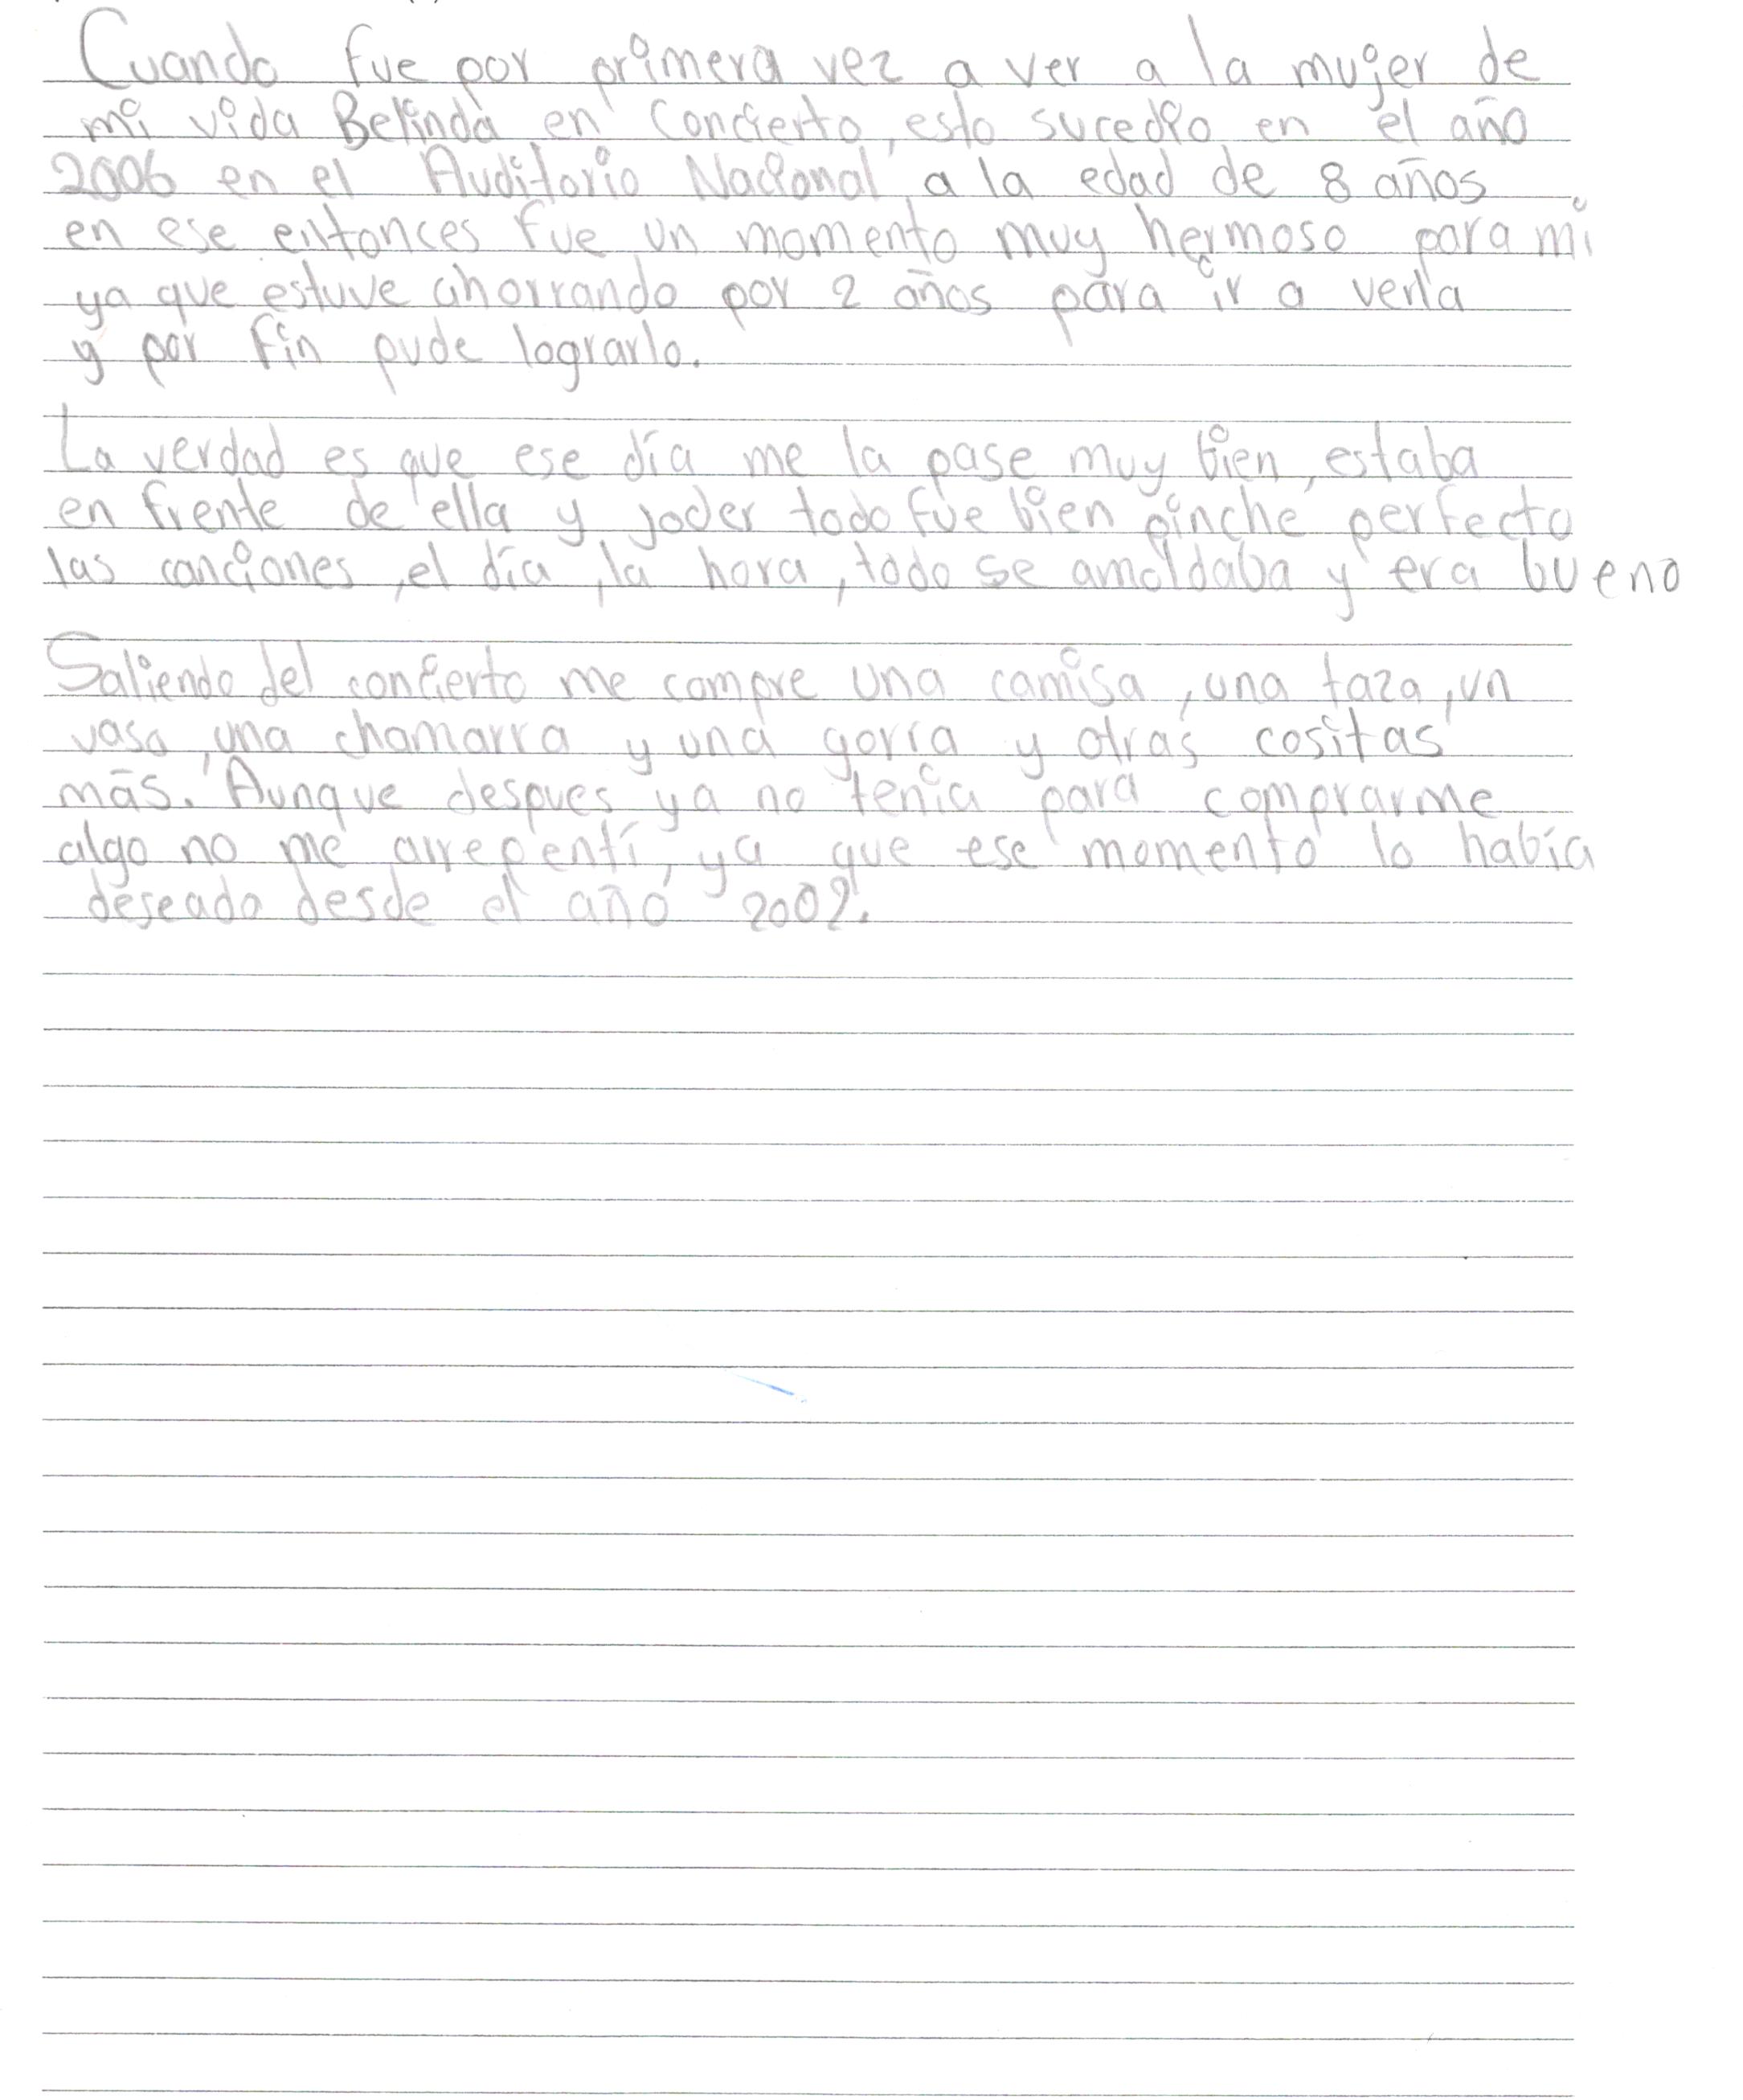 Cuando fue por primera vez a ver a la mujer de
mi vida Belinda en concierto, esto sucedio en el año
2006 en el Auditorio Nacional a la edad de 8 años
en ese entonces fue un momento muy hermoso para mi
ya que estuve ahorrando por 2 años para ir a verla
y por fin pude lograrlo.
La verdad es que ese día me la pase muy bien, estaba
en frente de ella y joder todo fue bien pinche perfecto
las canciones, el día, la hora, todo se amoldaba y era bueno
Saliendo del concierto me compre una camisa, una taza, un
vaso, una chamarra y una gorra y otras cositas
más. Aunque despues ya no tenía para comprarme
algo no me arrepentí, ya que ese momento lo había
deseado desde el año 2002.